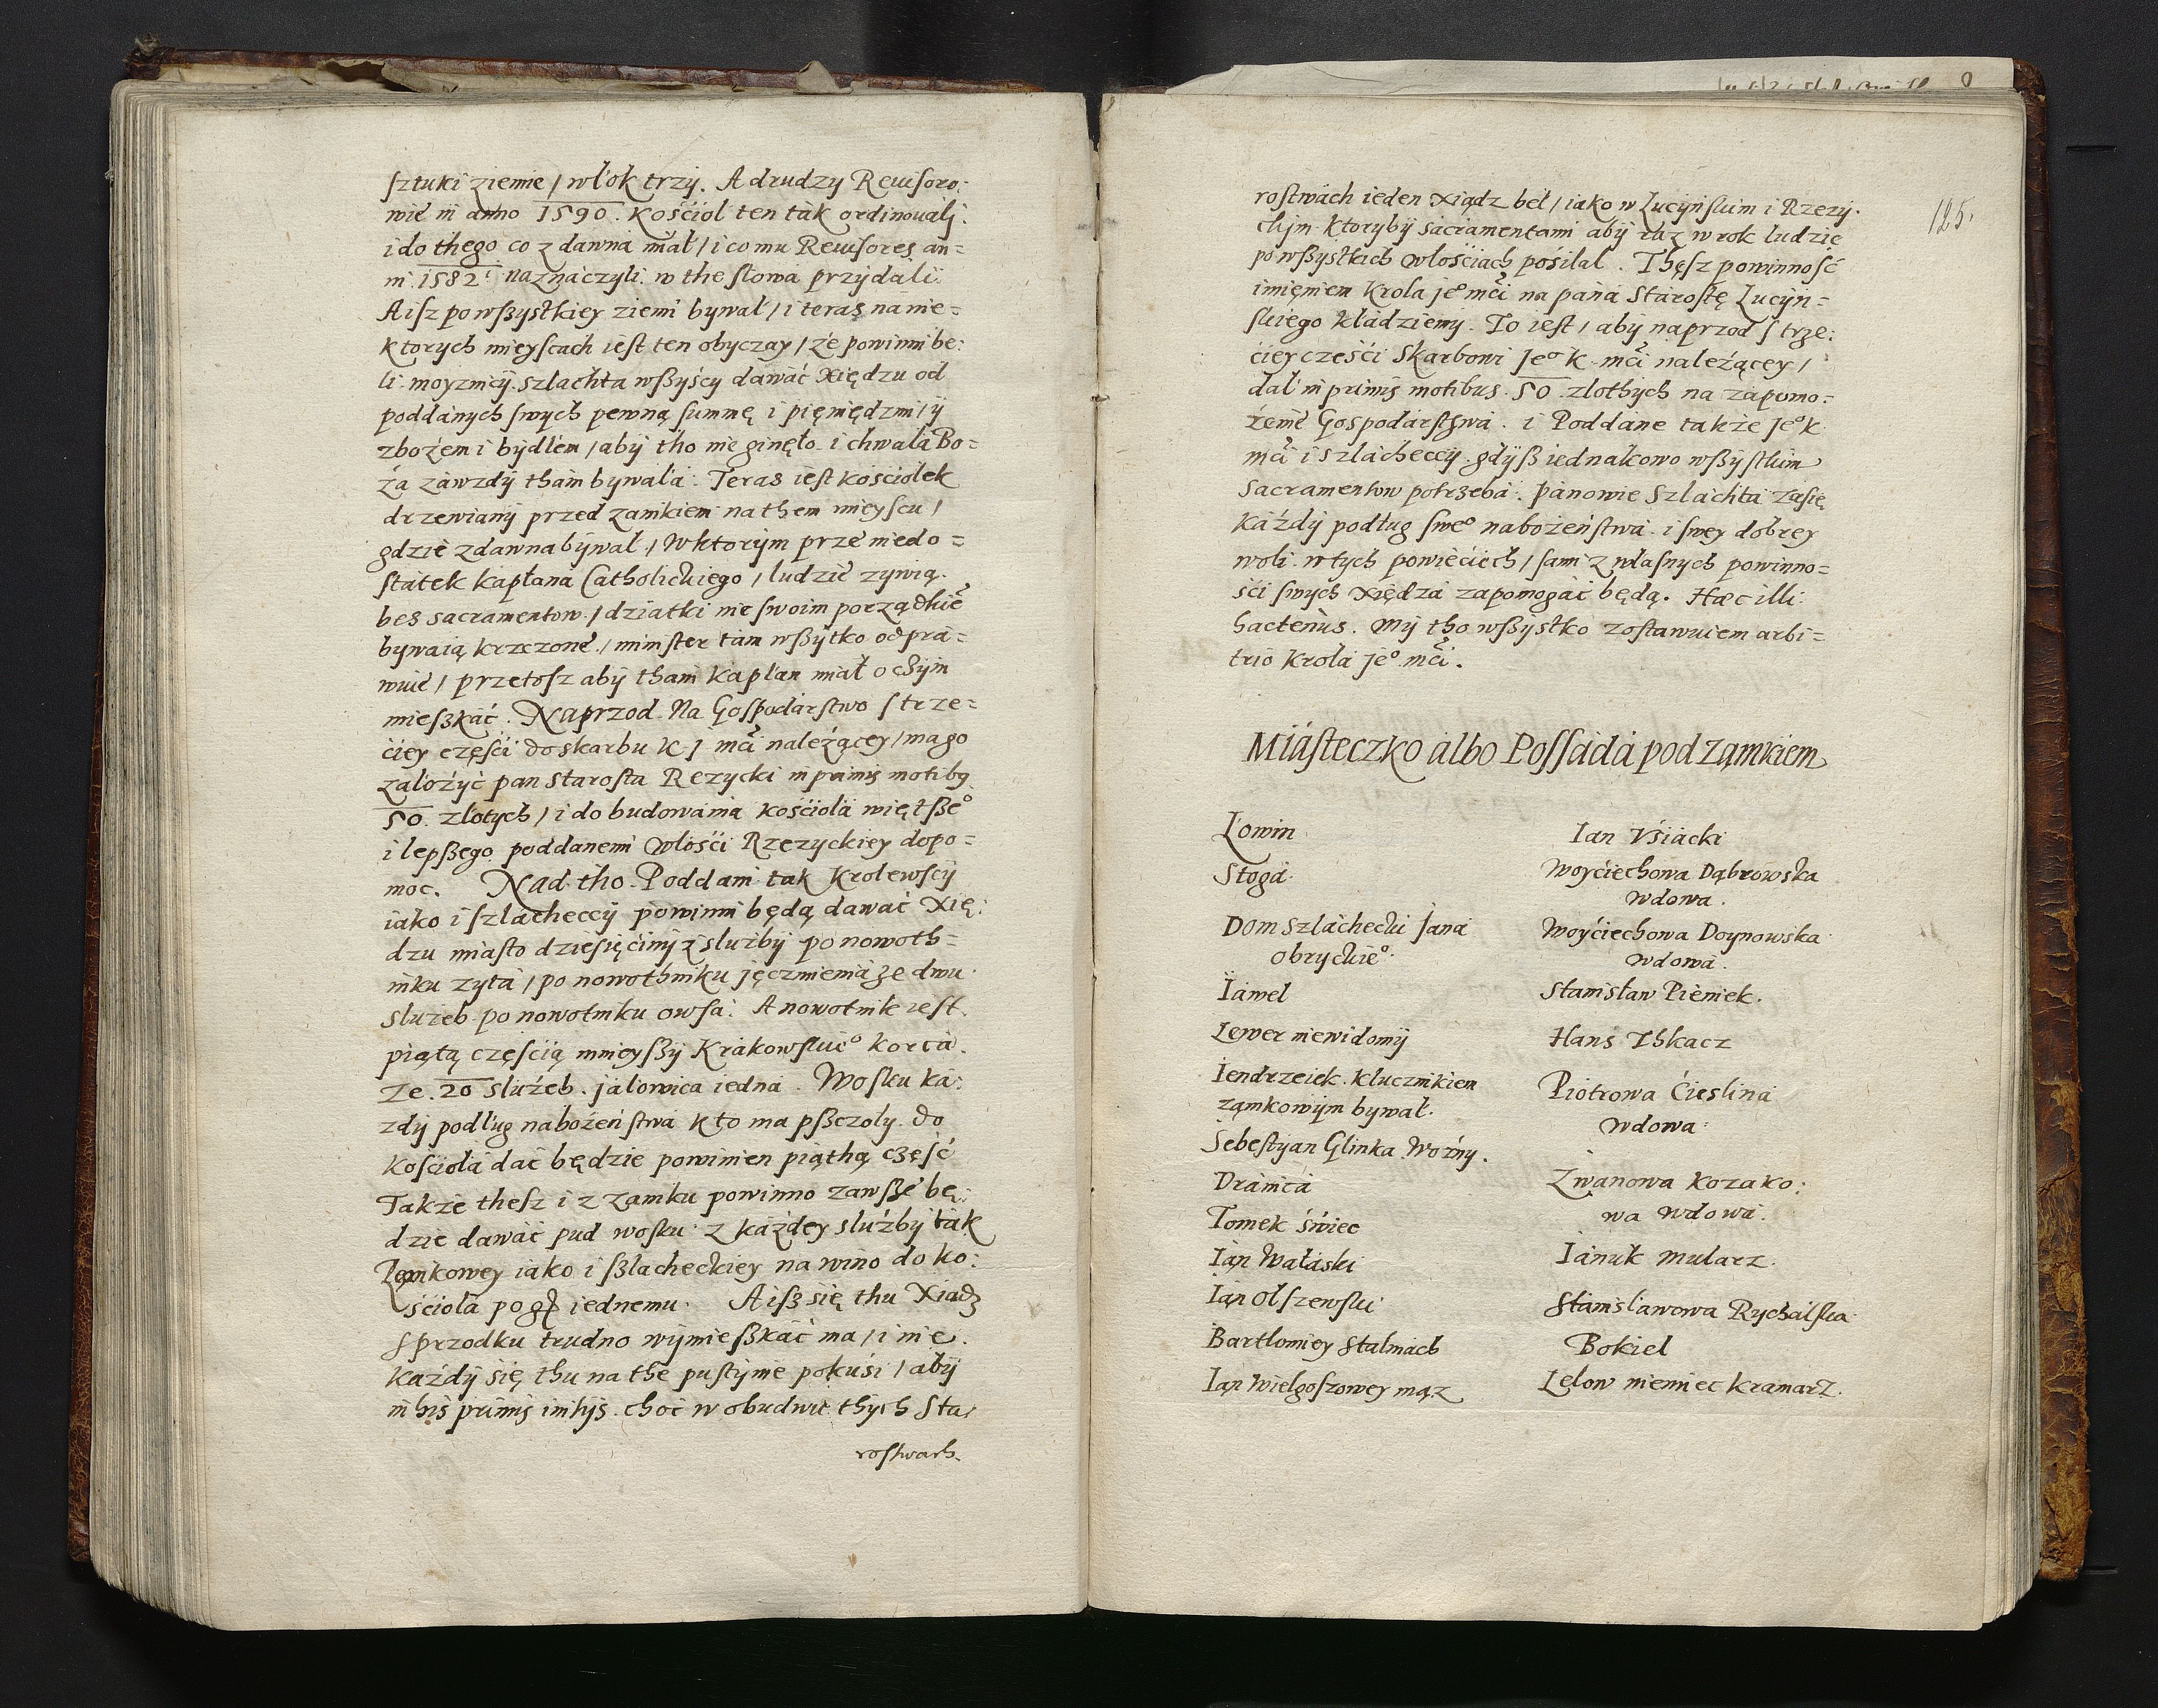 sztuki ziemie / włok trzy. A drudzy Reuisoro:
wie in anno 1590. Kosciol ten tak ordinouali.
i do thego co z dawna miał / i co mu Reuisores an=
ni 1582. naznaczyli w the słowa przydali.
A isz po wßystkiey ziemi bywał / i teras na nie=
ktorych mieyscach iest ten obyczay / że powinni be:
li moyznicy szlachta wßyścy dawać Xiędzu od
poddanych swych pewną summę i pięniędzmi / y
zbożem i bydlem / aby tho nie ginęło i chwała Bo=
ża zawzdy tham bywała. Teras iest kosciolek
drzewiany przed zamkiem na them mieyscu /
gdzie zdawna bywał / w ktorym prze niedo=
statek kapłana Catholickiego / ludzie zywią
bes sacramentow / dziatki nie swoim porządkie
bywaią krzczone / minister tam wßytko odpra=
wuie / przetosz aby tham kaplan miał o czym
mieszkać. Naprzod Na Gospodarstwo s trze=
ciey części do skarbu K J mći należącey / ma go
założyć pan starosta Rezycki in primis motibus
50. złotych / i do budowania kościoła więtße°
i lepßego poddanemi włości Rzezyckiey dopo=
moc. Nad tho Poddani tak Krolewscy
iako i szlacheccy powinni będą dawać Xię:
dzu miasto dziesięciny z służby po nowoth=
niku zyta / po nowothniku jęczmienia ze dwu
służeb po nowotniku owsa. A nowotnik iest
piątą częścią mnieyßy Krakowskie° korca.
Ze 20 służeb jalowica iedna. Wosku ka:
zdy podług nabożeństwa kto ma pßczoly do
kościoła dać będzie powinien piąthą część
Także thesz i z zamku powinno zawßé bę:
dzie dawać pud wosku z każdey służby tak
Zamkowey iako i ßlacheckiey na wino do ko:
ścioła po gß iednemu. A isz się thu Xiadz
s przodku trudno wymießkać ma / i nie
każdy się thu na the pustynie pokusi / aby
in his primis initijs choć w obudwu thych sta:
rostwach.
125.
rostwach ieden xiądz bel / iako w Lucynskim i Rzezy.
ckim ktoryby sacramentami aby raz w rok ludzie
po wßystkich włościach posilal. Thęsz powinność
imięniem Krola je° mći na pana Starostę Lucyn=
skiego kładziemy. To iest / aby naprzod s trze:
ciey części skarbowi Je° K mći należącey /
dał in primis motibus 50 zlothych na zapomo:
żenie Gospodarsthwa. i Poddane także Je° K
mći i szlacheccy gdyß iednakowo wßystkim
sacramentow potrzeba. Panowie Szlachta zasię
każdy podług swe° nabożeństwa i swey dobrey
woli w tych powieciech / sami z własnych powinno=
ści swych xiędza zapomogać będą. Hæc illi
hactenus. My tho wßystko zostawuiem arbi=
trio Krola je° mći.
Miasteczko albo Possada pod Zamkiem
Łowin
Stoga
Dom szlachecki Jana
obryckie°
Iawel
Lewer niewidomy
Iendrzeiek klucznikiem
zamkowym bywał.
Sebestyan Glinka Woźny.
Dranica
Tomek świec
Ian Wałaski
Ian Olszewski
Bartlomiey Stalmach
Ian Wielgoszowey mąz
Ian Vsiacki
Woyciechowa Dąbrowska
wdowa.
Woyciechowa Doynowska
wdowa.
Stanisław Pieniek.
Hans Thkacz
Piotrowa Cieslina
Wdowa
Iwanowa kozako:
wa wdowa.
Ianuk mularz.
Stanislawowa Rychalska
Bokiel
Lelow niemiec kramarz.